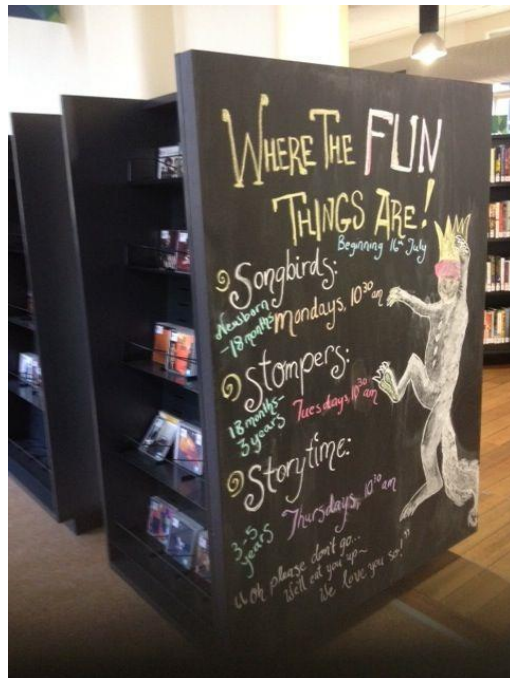 WHERE THE FUN
THINGS ARE!
Beginning 16th July
Songbirds:
Newborn
-18 months
Mondays, 10:30 am
Stompers:
18 months-
3 years
Tuesdays, 10:30 am
Storytime:
3-5
years
Thursdays, 10:30 am
"Oh please don't go...
We'll eat you up~
We love you so!"